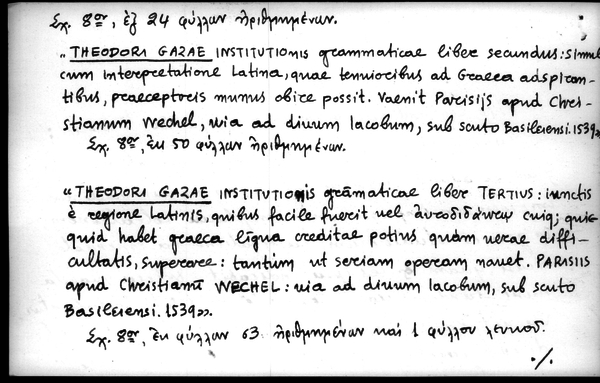 Σχ. 8ον, ἐξ 24 φύλλων ἠριθμημένων.
„ THEODORI GAZAE INSTITUTIONIS grammaticae liber secundus: simul
cum interpretatione Latina, quae tenuioribus ad Graeca adspiran-
tibus, praeceptoris munus obire possit. Vaenit Parisijs apud Chri-
stianum Wechel, uia ad diuum Iacobum, sub scuto Basileiensi. 1539»
Σχ. 8ον, ἐκ 50 φύλλων ἠριθμημένων.
“ THEODORI GAZAE INSTITUTIONIS grāmaticae liber TERTIUS: iunctis
è regione Latinis, quibus facile fuerit uel αὐτοδιδάκτῳ cuiq; quic
quid habet graeca līgua creditae potius quàm uerae diffi-
cultatis, superare: tantùm ut seriam operam nauet. PARISIIS
apud Christianū WECHEL: uia ad diuum Iacobum, sub scuto
Basileiensi. 1539».
Σχ. 8ον, ἐκ φύλλων 63 ἠριθμημένων καὶ 1 φύλλου λευκοῦ.
./.